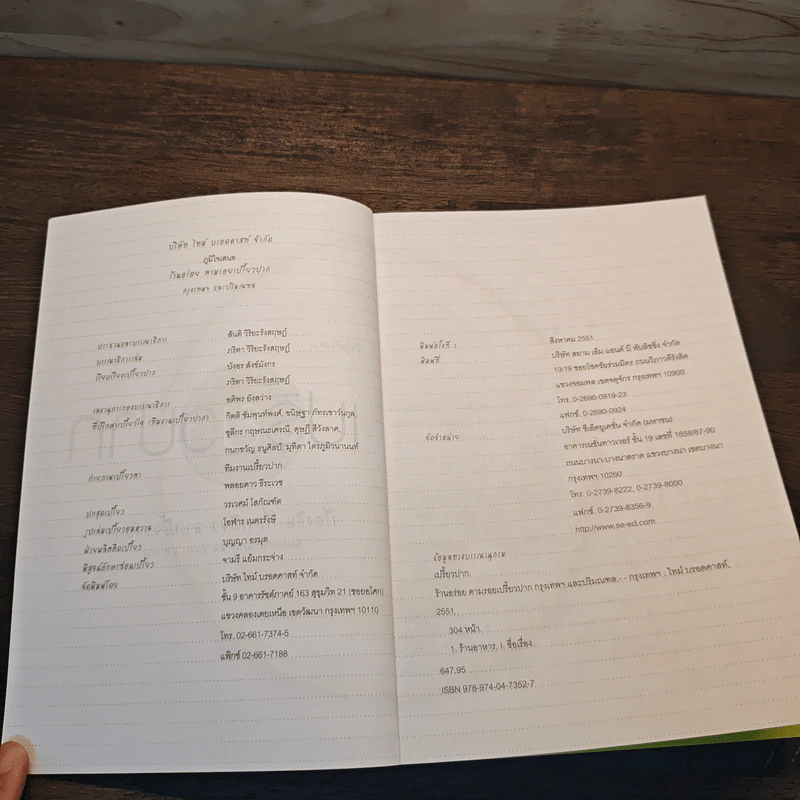 บริษัท ไทม์ บรอดคาสท์ จำกัด
ภูมิใจเสนอ
ร้านอร่อย ตามรอยเปรี้ยวปาก
กรุงเทพฯ และปริมณฑล
ประธานและบรรณาธิการ สันติ วิริยะรังสฤษฎ์
บรรณาธิการเล่ม ภริตา วิริยะรังสฤษฎ์
เรียบเรียงเปรี้ยวปาก บังอร สังข์มังกร
ภริตา วิริยะรังสฤษฎ์
เลขานุการกองบรรณาธิการ อติพร ยังสว่าง
ที่ปรึกษาเปรี้ยวใจ (ทีมงานเปรี้ยวปาก) กิตติ ชัมพุนท์พงศ์, ชนิษฐา ภัทรเชาว์นกุล,
ชุลีกร กฤษณะเศรณี, ดุษฎี สีวังลาศ,
กนกขวัญ อนุศิลป์, มุทิตา ไตรภูมิวนานนท์
ถ่ายภาพเปรี้ยวตา ทีมงานเปรี้ยวปาก
พลอยดาว ธีระเวช
ปกสุดเปรี้ยว วรเวศม์ โสภัณฑัต
รูปเล่มเปรี้ยวอมหวาน โอฬาร เนตรรังษี
ฝ่ายผลิตติดเปรี้ยว บุญญา อรมุต
พิสูจน์อักษรซ่อนเปรี้ยว จามรี แย้มกระจ่าง
จัดพิมพ์โดย บริษัท ไทม์ บรอดคาสท์ จำกัด
ชั้น 9 อาคารรัชต์ภาคย์ 163 สุขุมวิท 21 (ซอยอโศก)
แขวงคลองเตยเหนือ เขตวัฒนา กรุงเทพฯ 10110
โทร. 02-661-7374-5
แฟ็กซ์ 02-661-7188
พิมพ์ครั้งที่ 1 สิงหาคม 2551
พิมพ์ที่ บริษัท สยาม เอ็ม แอนด์ บี พับลิชชิ่ง จำกัด
19/19 ซอยโชคชัยร่วมมิตร ถนนวิภาวดีรังสิต
แขวงจอมพล เขตจตุจักร กรุงเทพฯ 10900
โทร. 0-2690-0919-23
แฟกซ์. 0-2690-0924
จัดจำหน่าย บริษัท ซีเอ็ดยูเคชั่น จำกัด (มหาชน)
อาคารเนชั่นทาวเวอร์ ชั้น 19 เลขที่ 1858/87-90
ถนนบางนา-บางนาตราด แขวงบางนา เขตบางนา
กรุงเทพฯ 10260
โทร. 0-2739-8222, 0-2739-8000
แฟกซ์. 0-2739-8356-9
http://www.se-ed.com
ข้อมูลทางบรรณานุกรม
เปรี้ยวปาก.
ร้านอร่อย ตามรอยเปรี้ยวปาก กรุงเทพฯ และปริมณฑล.- - กรุงเทพฯ : ไทม์ บรอดคาสท์,
2551.
304 หน้า.
1. ร้านอาหาร. I. ชื่อเรื่อง.
647.95
ISBN 978-974-04-7352-7